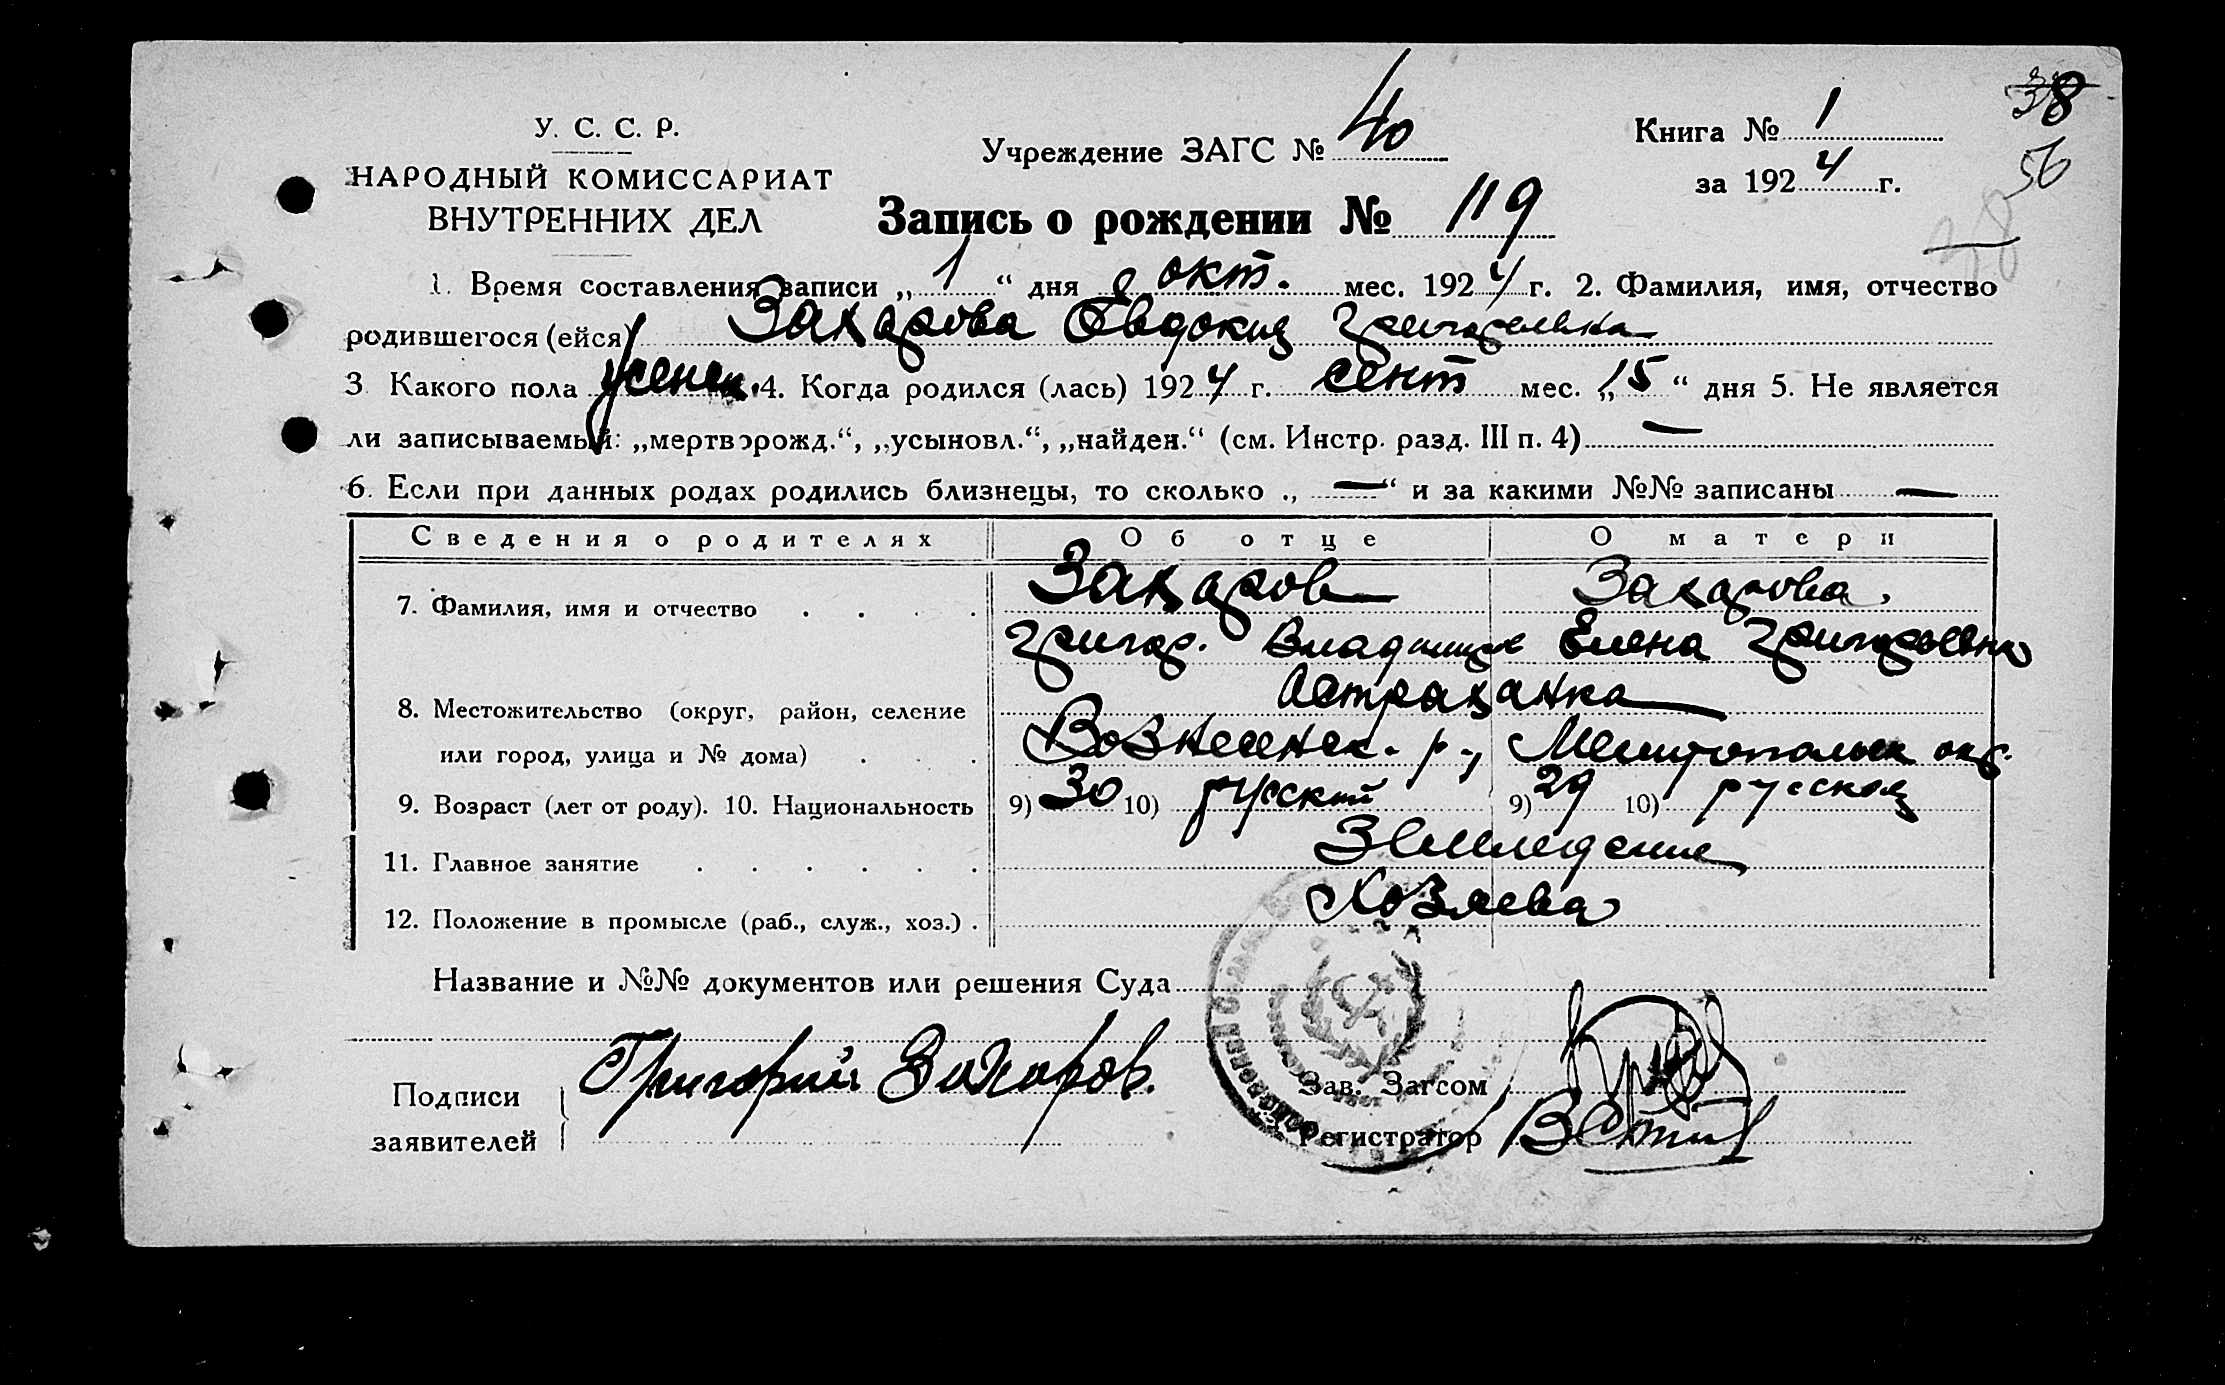 38
56
28
У. С. С. Р.
НАРОДНЫЙ КОМИССАРИАТ
ВНУТРЕННИХ ДЕЛ
Учреждение ЗАГС № 40
Книга № 1
за 1924 г.
Запись о рождении № 119
1. Время составления записи „ 1 “ дня окт. мес. 1924 г. 2. Фамилия, имя, отчество
родившегося (ейся) Захарова Евдокия Григорьевна
3. Какого пола женск. 4. Когда родился (лась) 1924 г. сент мес. „ 15 “ дня 5. Не является
ли записываемый: „мертворожд.“, „усыновл.“, „найден.“ (см. Инстр. разд. III п. 4) —
6. Если при данных родах родились близнецы, то сколько „ — “ и за какими №№ записаны —
Сведения о родителях Об отце О матери
7. Фамилия, имя и отчество . . . . Захаров Захарова.
Григор. Владимир Елена Григорьевна
Астраханка
8. Местожительство (округ, район, селение
или город, улица и № дома) . . . Вознесенск. р., Мелитопольск окр.
9. Возраст (лет от роду). 10. Национальность 9) 30 10) русский 9) 29 10) русская
11. Главное занятие . . . . . . Земледелие
12. Положение в промысле (раб., служ., хоз.) . Хозяева
Название и №№ документов или решения Суда
Подписи
заявителей
Григорий Захаров.
Зав. Загсом
Регистратор